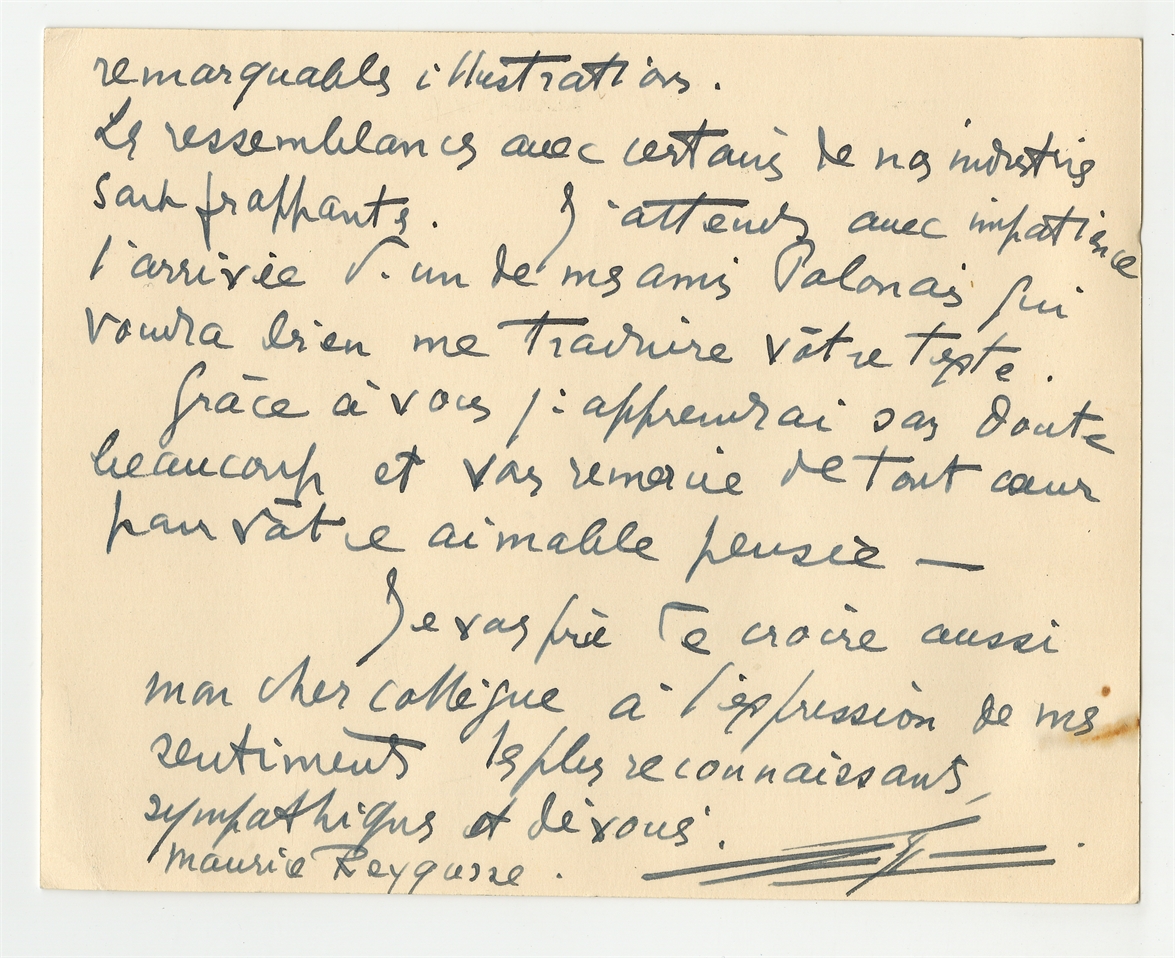 remarquables illustrations.
Les ressemblances avec certains de nos industries
sont frappantes. J'attends avec impatience
l'arrivée d'un de mes amis Polonais qui
voudra bien me traduire vôtre texte.
Grâce à vous j'apprendrai sans doute
beaucoup et vous remercie de tout cœur
pour vôtre aimable pensée —
Je vous prie de croire aussi
mon cher collègue à l'expression de mes
sentiments les plus reconnaissants,
sympathiques et dévoués.
Maurice Reygasse.